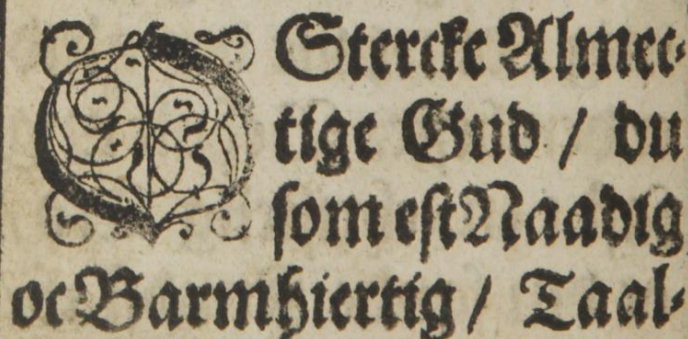 O Stercke Almec-
tige Gud / du
som est Naadig
oc Barmhiertig / Taal-